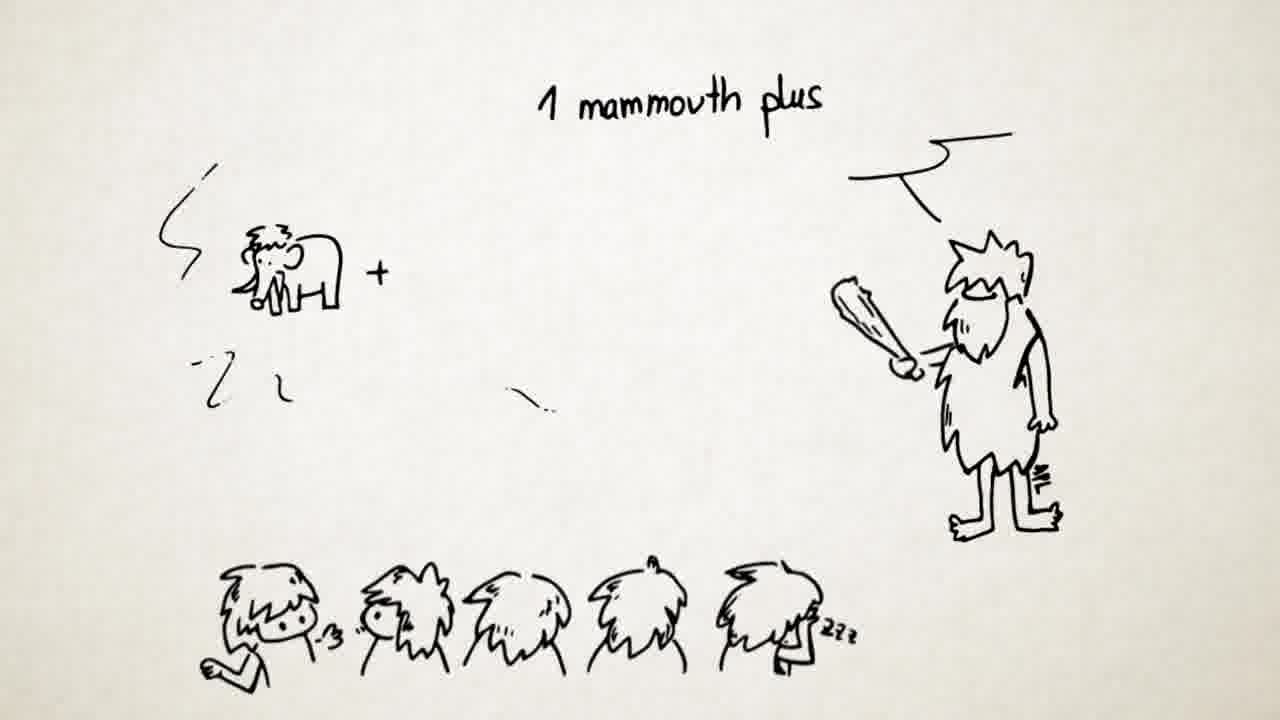 1 mammouth plus
+
zzz